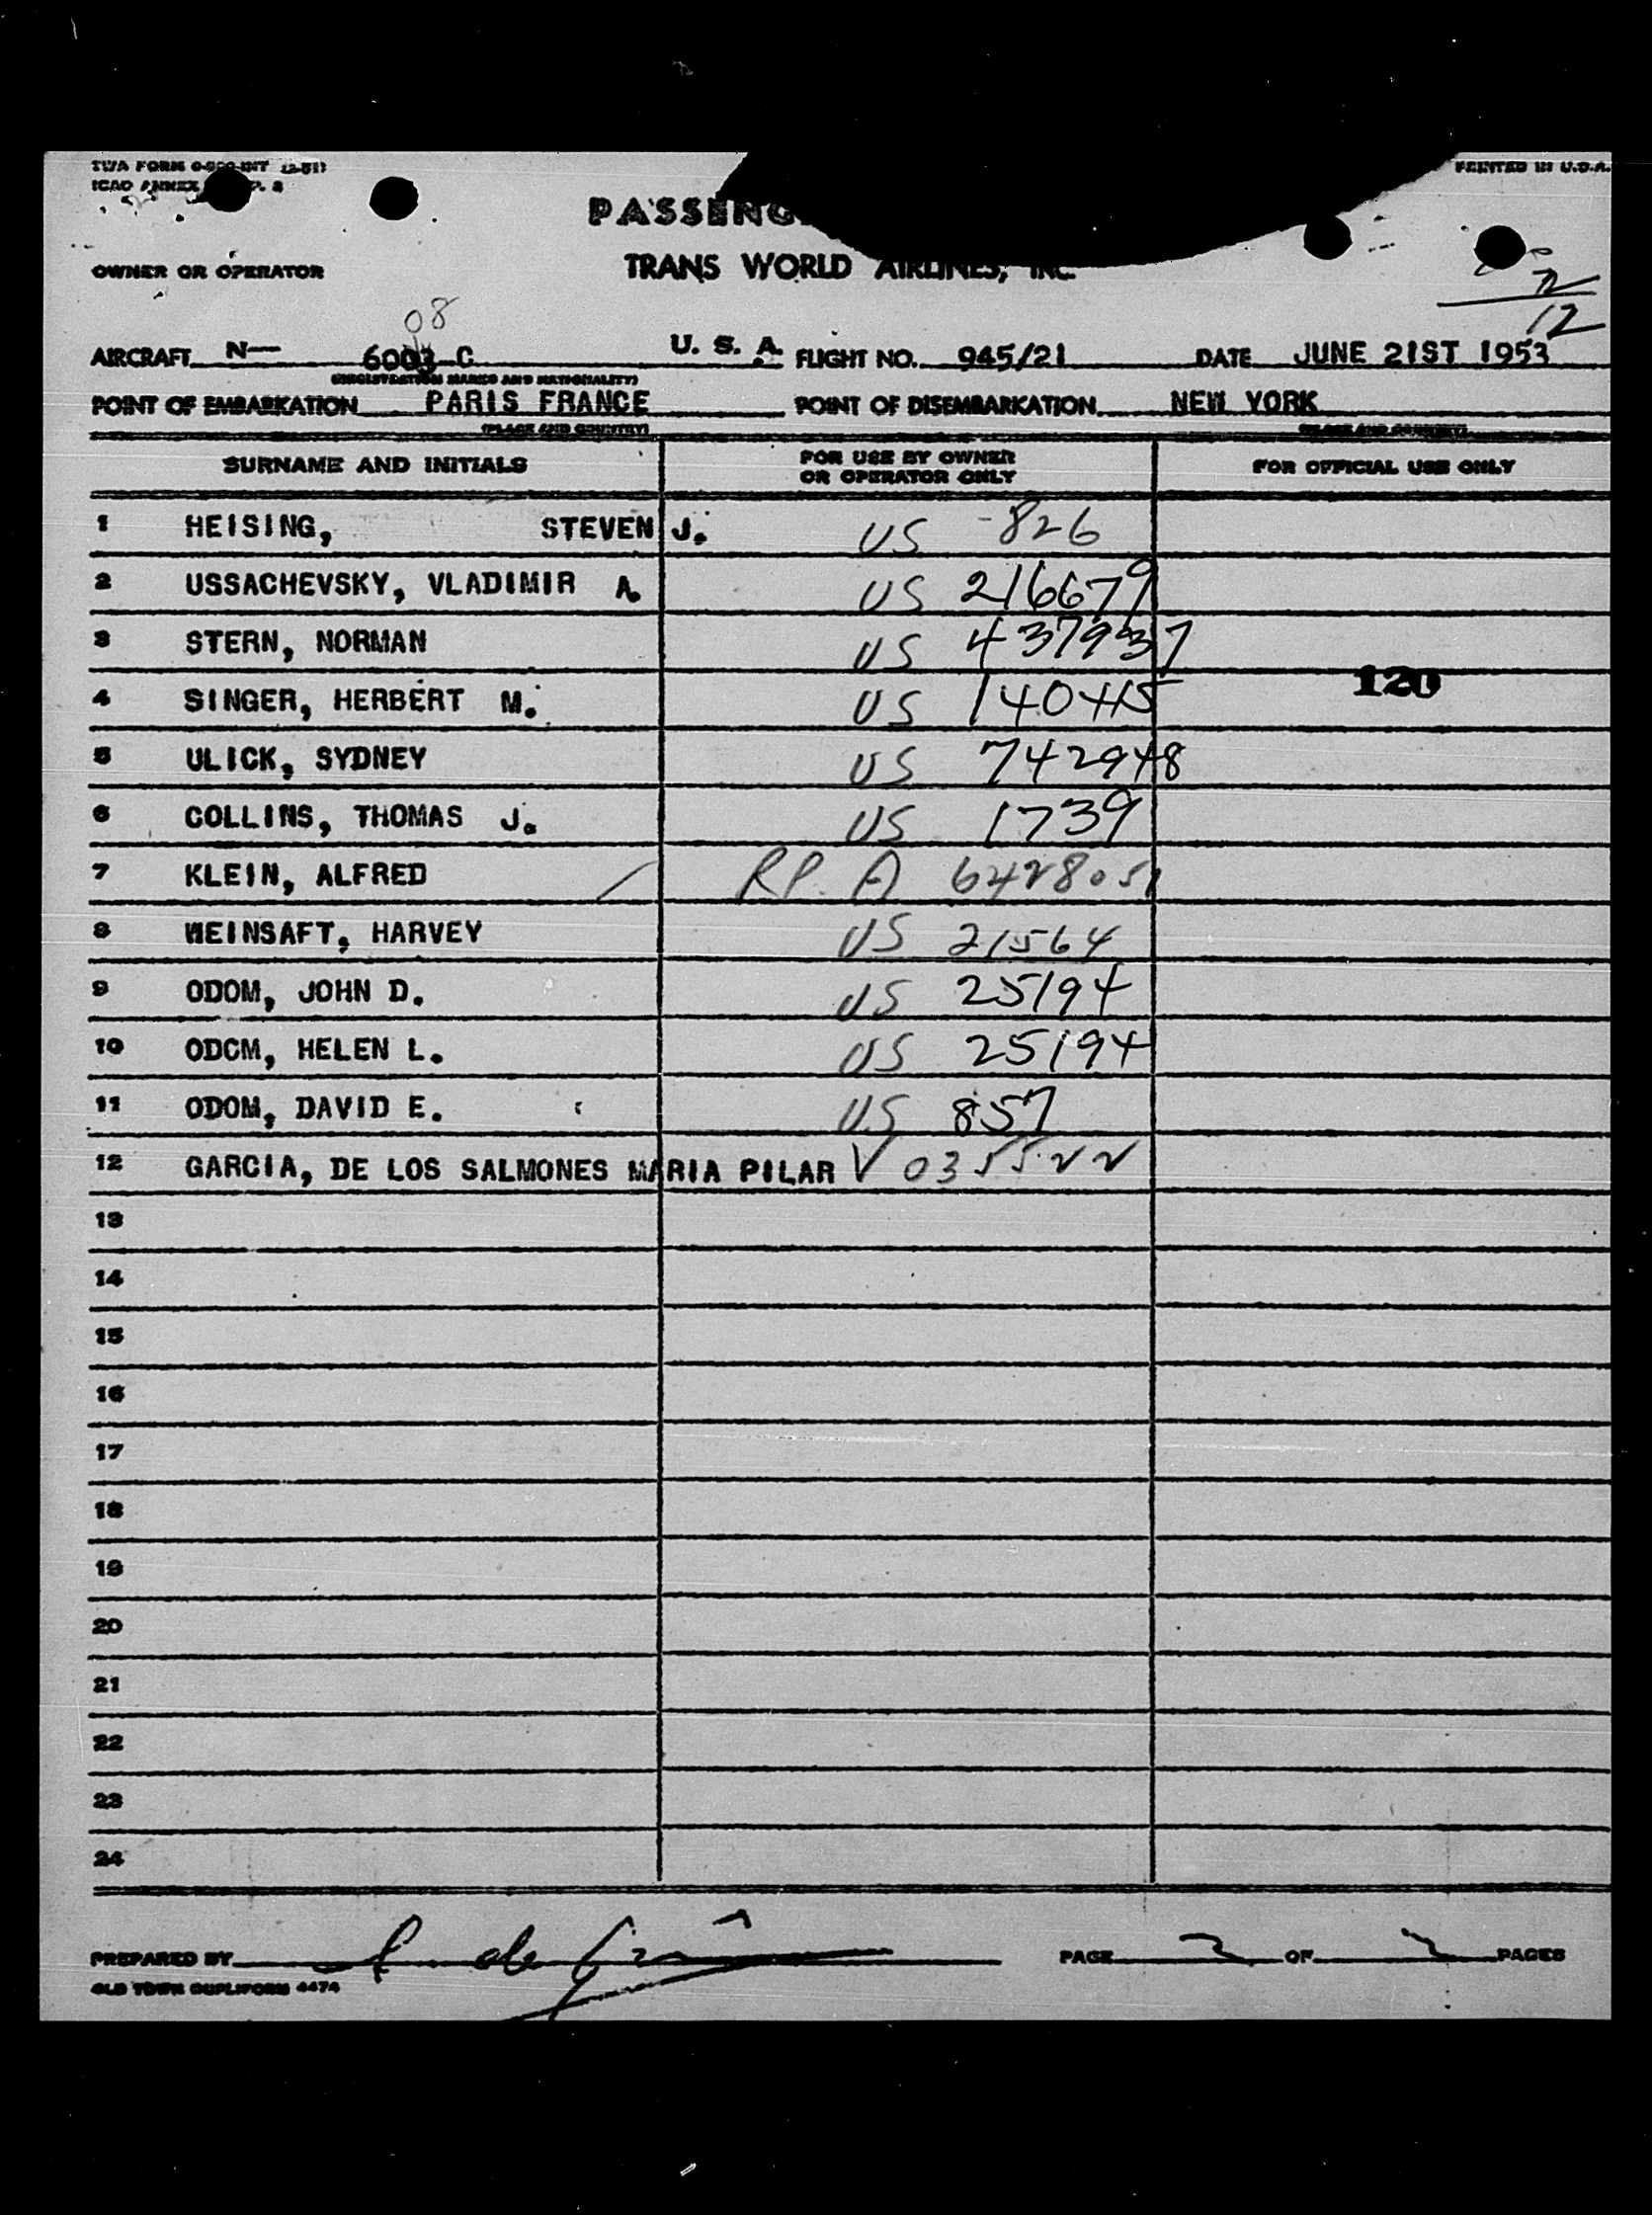 TWA FORM
ICAO ANNEX
PRINTED IN U.S.A.
PASSENG
OWNER OR OPERATOR TRANS WORLD AIRLINES, INC.
12
08
AIRCRAFT N— 6003-C U. S. A. FLIGHT NO. 945/21 DATE JUNE 21ST 1953
(REGISTRATION MARKS AND NATIONALITY)
POINT OF EMBARKATION PARIS FRANCE POINT OF DISEMBARKATION NEW YORK
(PLACE AND COUNTRY) (PLACE AND COUNTRY)
SURNAME AND INITIALS FOR USE BY OWNER OR OPERATOR ONLY FOR OFFICIAL USE ONLY
1 HEISING, STEVEN J. US -826
2 USSACHEVSKY, VLADIMIR A. US 216679
3 STERN, NORMAN US 437937
120
4 SINGER, HERBERT M. US 140415
5 ULICK, SYDNEY US 742948
6 COLLINS, THOMAS J. US 1739
7 KLEIN, ALFRED RP. A 6428051
8 WEINSAFT, HARVEY US 21564
9 ODOM, JOHN D. US 25194
10 ODOM, HELEN L. US 25194
11 ODOM, DAVID E. US 857
12 GARCIA, DE LOS SALMONES MARIA PILAR V 035522
13
14
15
16
17
18
19
20
21
22
23
24
PREPARED BY PAGE 2 OF 2 PAGES
OLD TOWN DUPLIFORM 4474